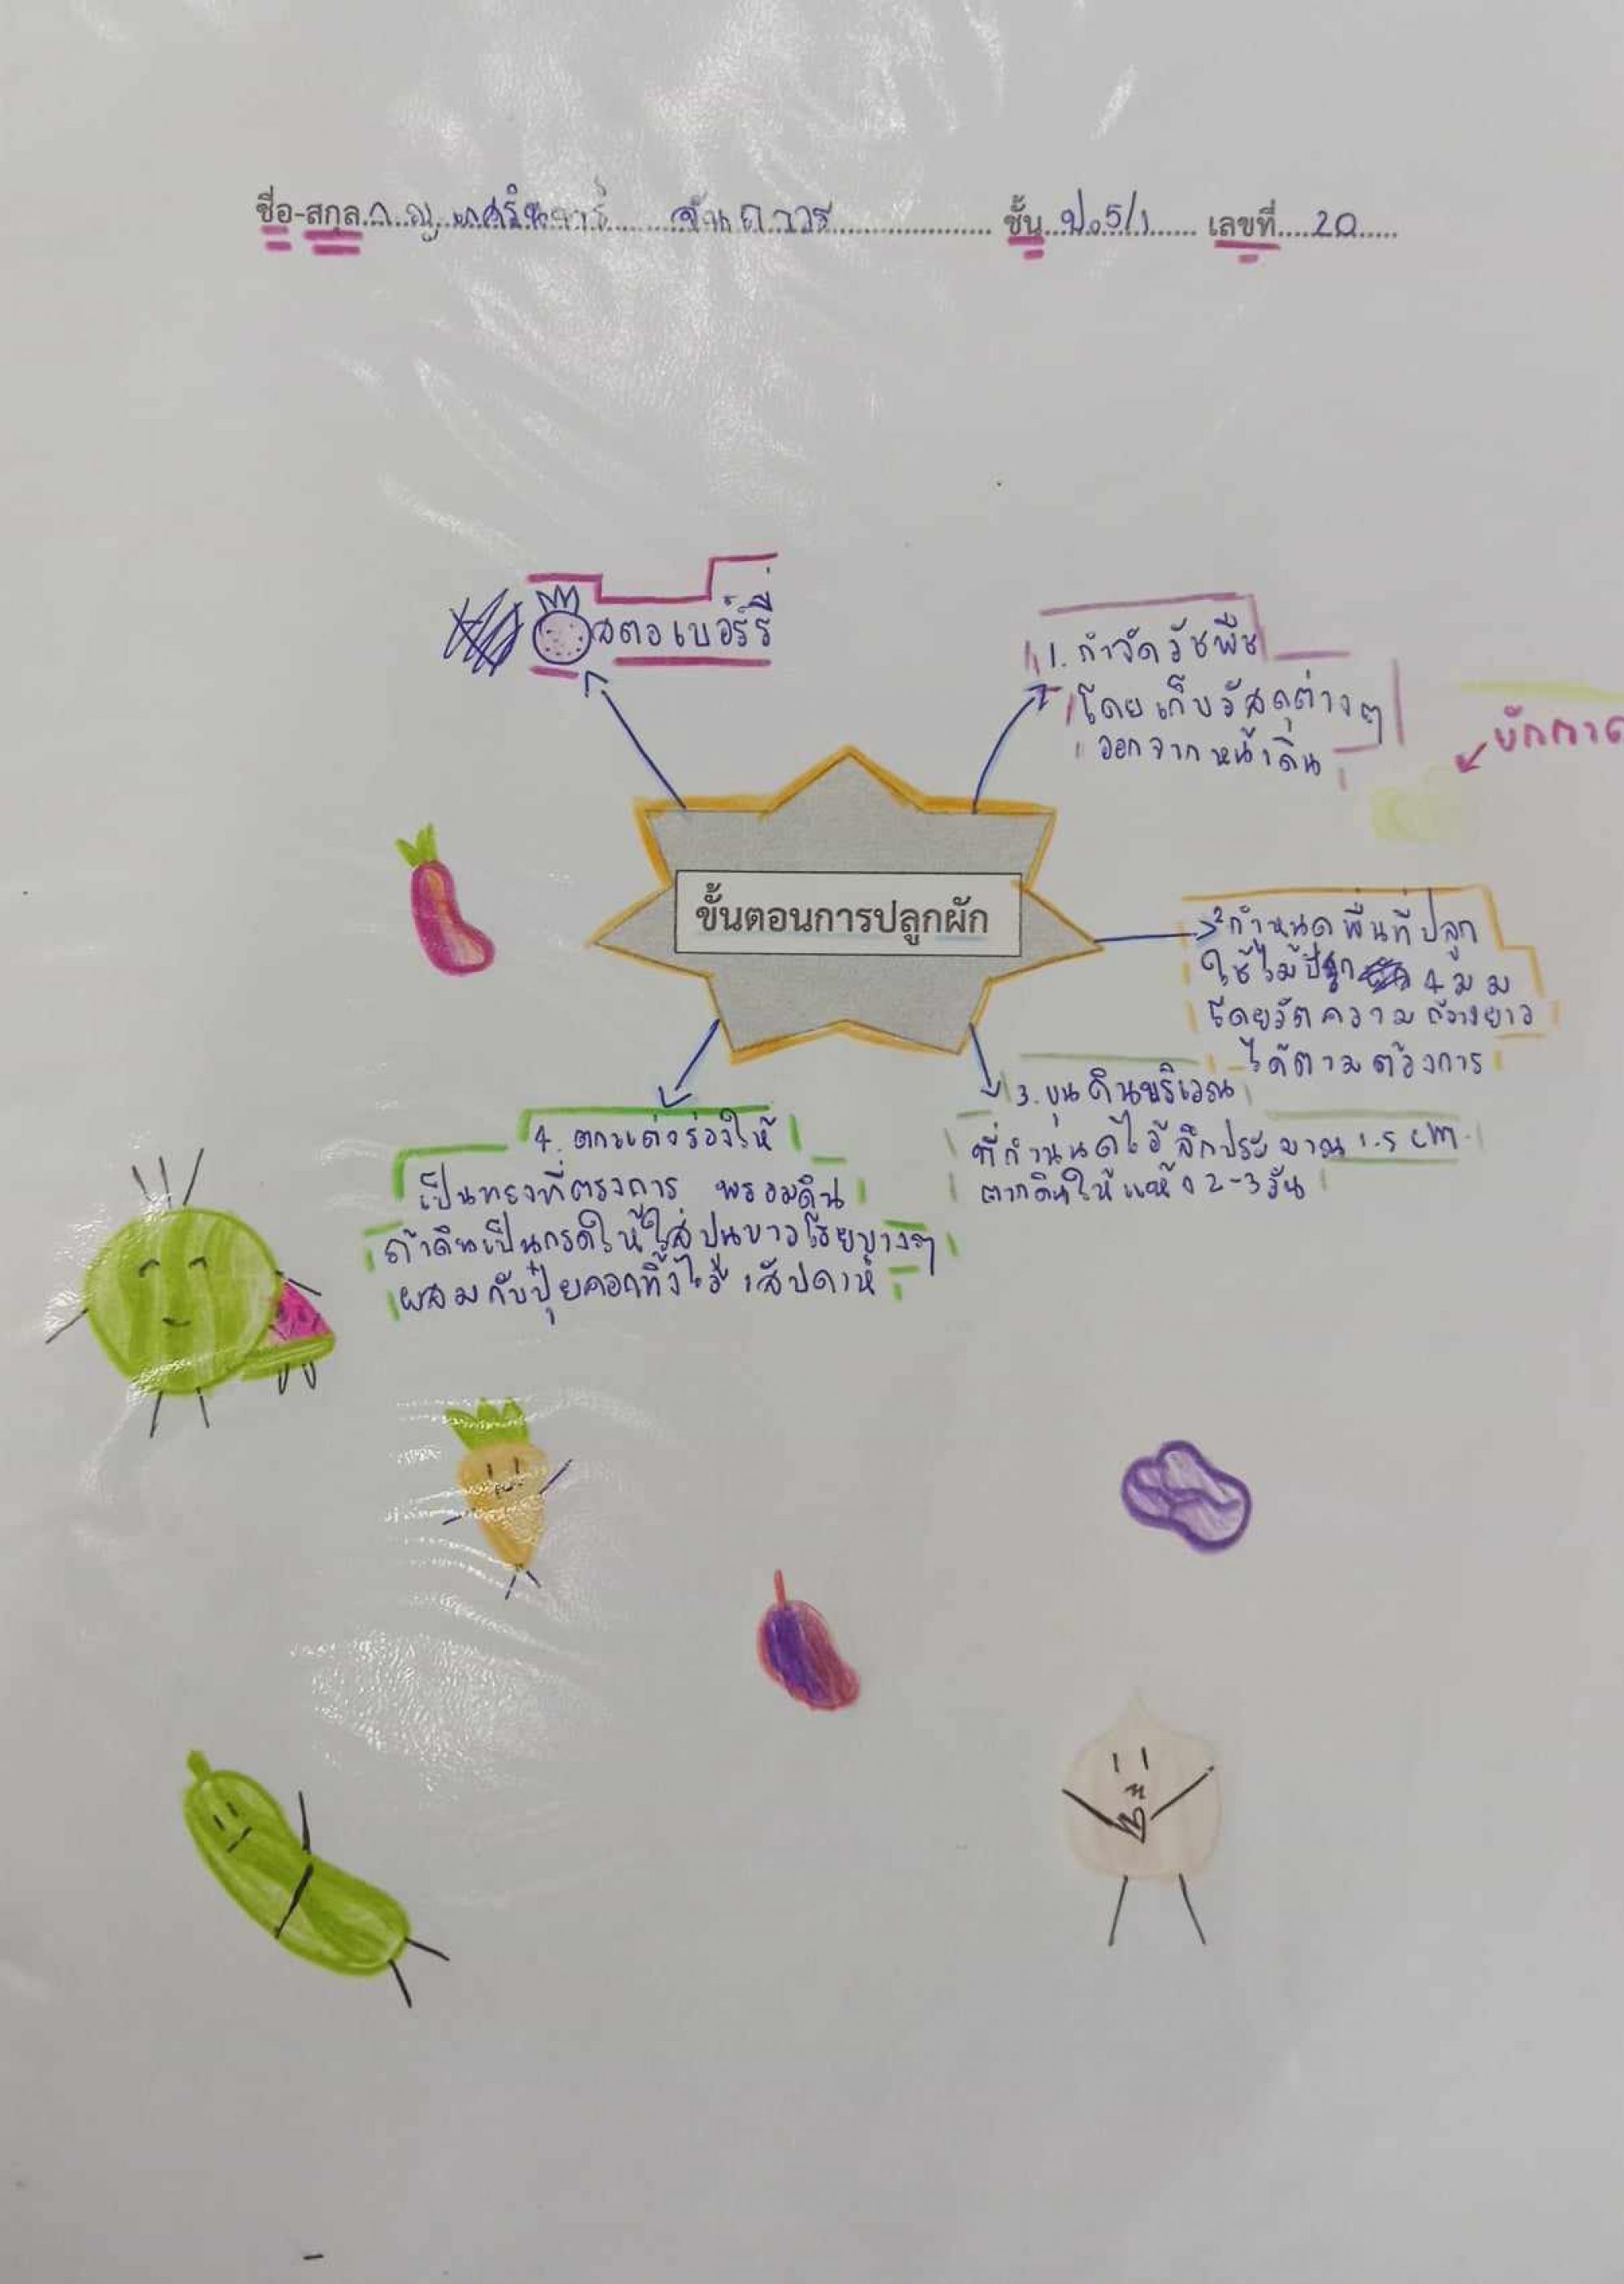 ชื่อ-สกุล ด.ญ. ชั้น ป.5/1 เลขที่ 20
สตอเบอร์รี่
1. กำจัดวัชพืช
โดยเก็บวัสดุต่างๆ
ออกจากหน้าดิน
ผักกาด
ขั้นตอนการปลูกผัก
2 กำหนดพื้นที่ปลูก
ใช้ไม้ปัก 4 มุม
โดยวัดความกว้างยาว
ได้ตามต้องการ
3. ขุนดินบริเวณ
ที่กำหนดไว้ลึกประมาณ 1.5 cm.
ตากดินให้แห้ง 2-3 วัน
4. ตกแต่งร่องให้
เป็นทรงที่ตรงการ พรอมดิน
ถ้าดินเป็นกรดให้ใส่ปูนขาวโรยบางๆ
ผสมกับปุ๋ยคอกทิ้งไว้ 1สัปดาห์